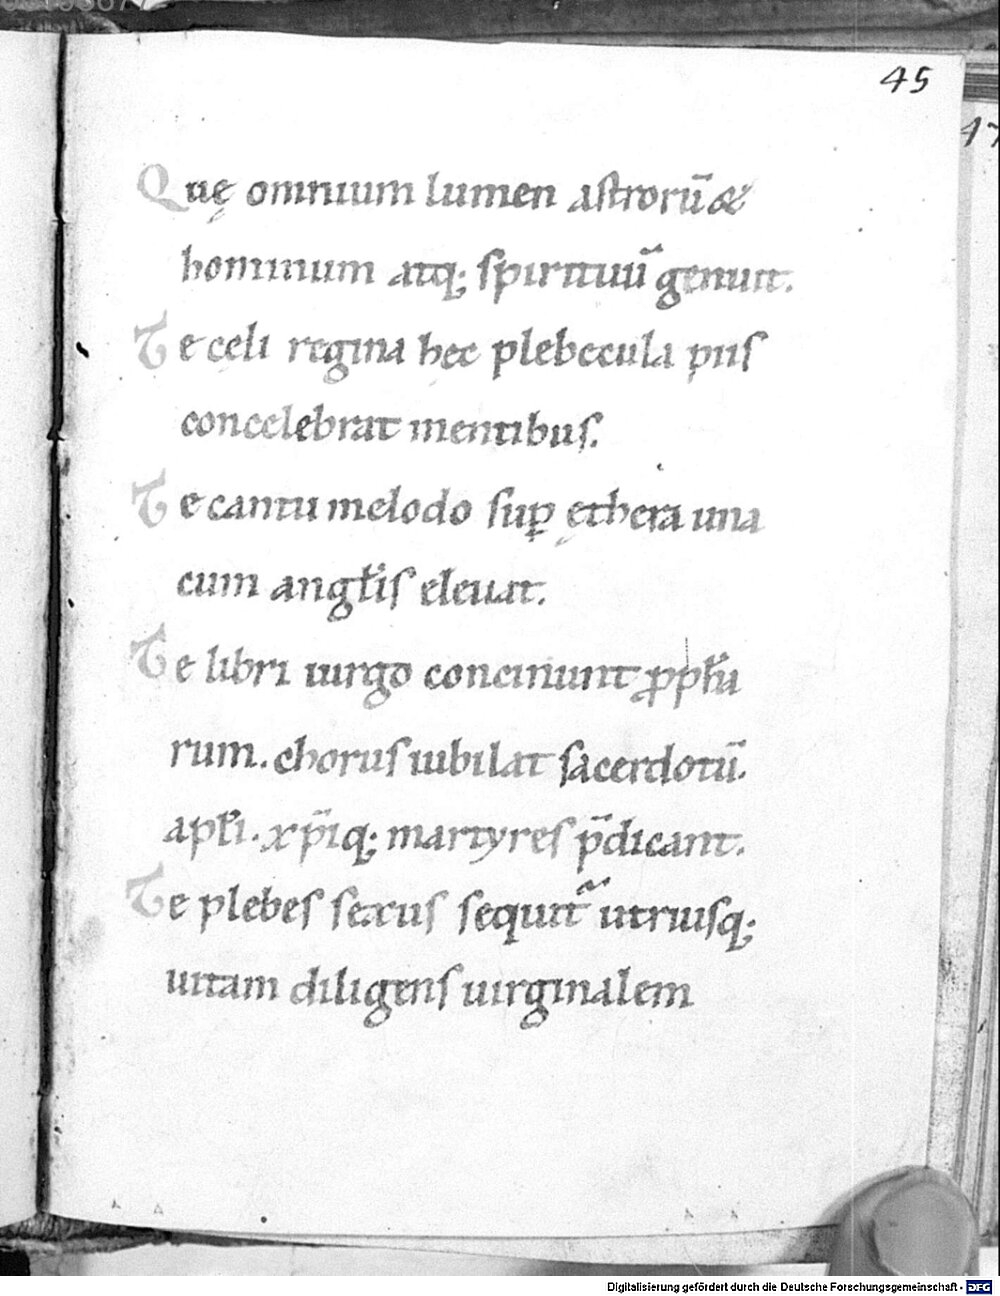 45
17
Quę omnium lumen astrorū &
hominum atq; spirituū genuit.
Te celi regina hec plebecula piis
concelebrat mentibus.
Te cantu melodo suꝑ ęthera una
cum angl̄is eleuat.
Te libri uirgo concinunt ꝓph̄a
rum. chorus iubilat sacerdotū.
apl̄i. xp̄iq; martyres p̄dicant.
Te plebes sexus sequit᷑ utriusq;
uitam diligens uirginalem
Digitalisierung gefördert durch die Deutsche Forschungsgemeinschaft - DFG